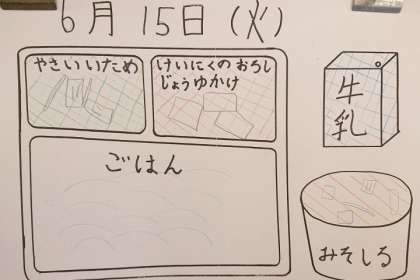 6月15日(火)
やさいいため
けいにくのおろし
じょうゆかけ
ごはん
牛
乳
みそしる